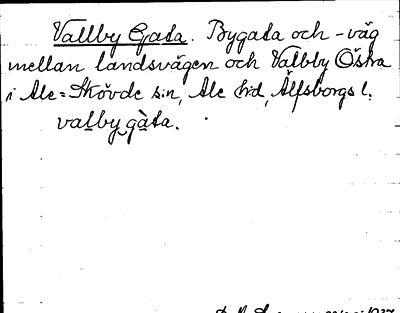 Vallby Gata. Bygata och -väg
mellan landsvägen och Vallby Östra
i Ale-Skövde s:n, Ale hd, Älfsborgs l.
valby gàta.